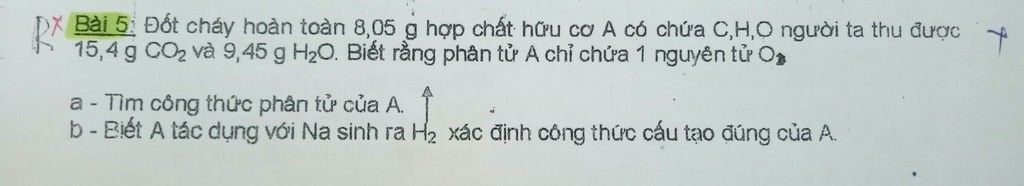 Bài 5: Đốt cháy hoàn toàn 8,05 g hợp chất hữu cơ A có chứa C,H,O người ta thu được
15,4 g CO₂ và 9,45 g H₂O. Biết rằng phân tử A chỉ chứa 1 nguyên tử O
a - Tìm công thức phân tử của A.
b - Biết A tác dụng với Na sinh ra H₂ xác định công thức cấu tạo đúng của A.